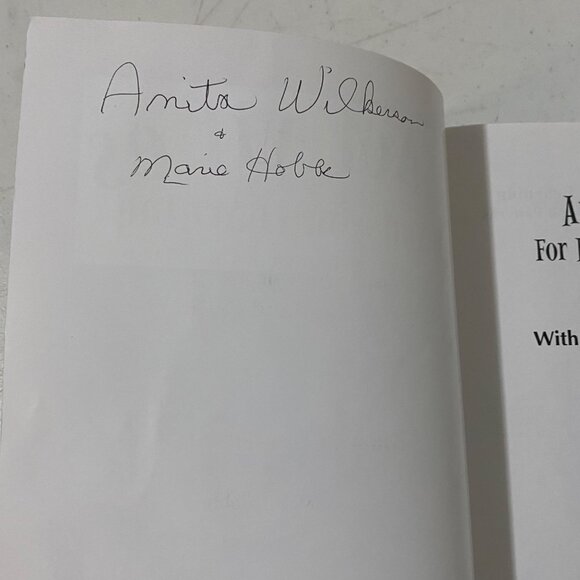 Anita Wilkerson
&
Marie Hobbs
For
With